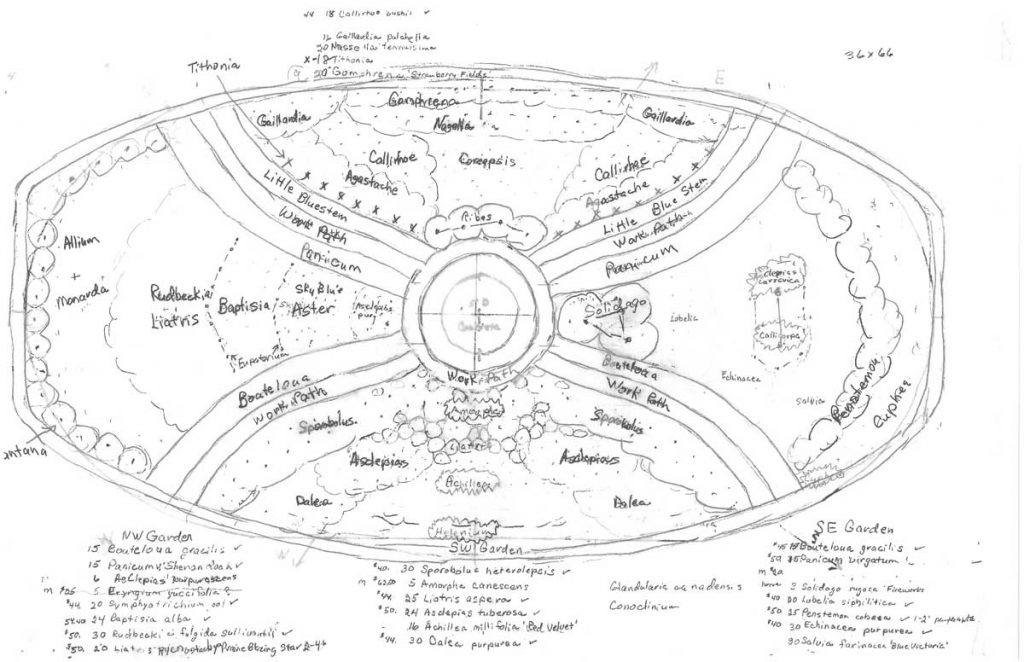 44 18 Callirhoe bushii ✓
Gaillardia pulchella
30 Nassella tenuissima
x-18 Tithonia
20 Gomphrena 'Strawberry Fields'
36 x 66
Tithonia
E
Gomphrena
Gaillardia
Nasella
Gaillardia
Callirhoe
Coreopsis
Callirhoe
Agastache
Agastache
Little Bluestem
Little Blue Stem
Ribes
Work Path
Work Path
Panicum
Panicum
Allium
+
Monarda
Rudbeckia
Liatris
Baptisia
Sky Blue
Aster
Asclepias
pur
Solidago
Lobelia
Callicarpa
Eupatorium
Echinacea
Salvia
Penstemon
Work Path
Bouteloua
Work Path
Bouteloua
Work Path
Sporobolus
Amorpha
Sporobolus
Liatris
Asclepias
Asclepias
Achillea
Dalea
Dalea
Helenium
NW Garden
15 Bouteloua gracilis ✓
15 Panicum v. 'Shenandoah' ✓
6 Asclepias purpurascens
m $25 5 Eryngium yuccifolia
$44. 20 Symphyotrichium ool ✓
24 Baptisia alba ✓
$50. 30 Rudbeckia fulgida sullivantii ✓
$50. 20 Liatris pycnostachya Prairie Blazing Star 2-4'
SW Garden
$40. 30 Sporobolus heterolepsis ✓
m 5 Amorpha canescens
$44. 25 Liatris aspera ✓
$50. 24 Asclepias tuberosa ✓
16 Achillea millifolia 'Red Velvet'
$44. 30 Dalea purpurea ✓
Glandularia canadensis
Conoclinium
SE Garden
Bouteloua gracilis ✓
Panicum virgatum
3 Solidago rugosa Fireworks
Lobelia siphilitica ✓
$50 25 Penstemon cobaea ✓ 1-2'
$40 30 Echinacea purpurea ✓
30 Salvia farinacea 'Blue Victoria'